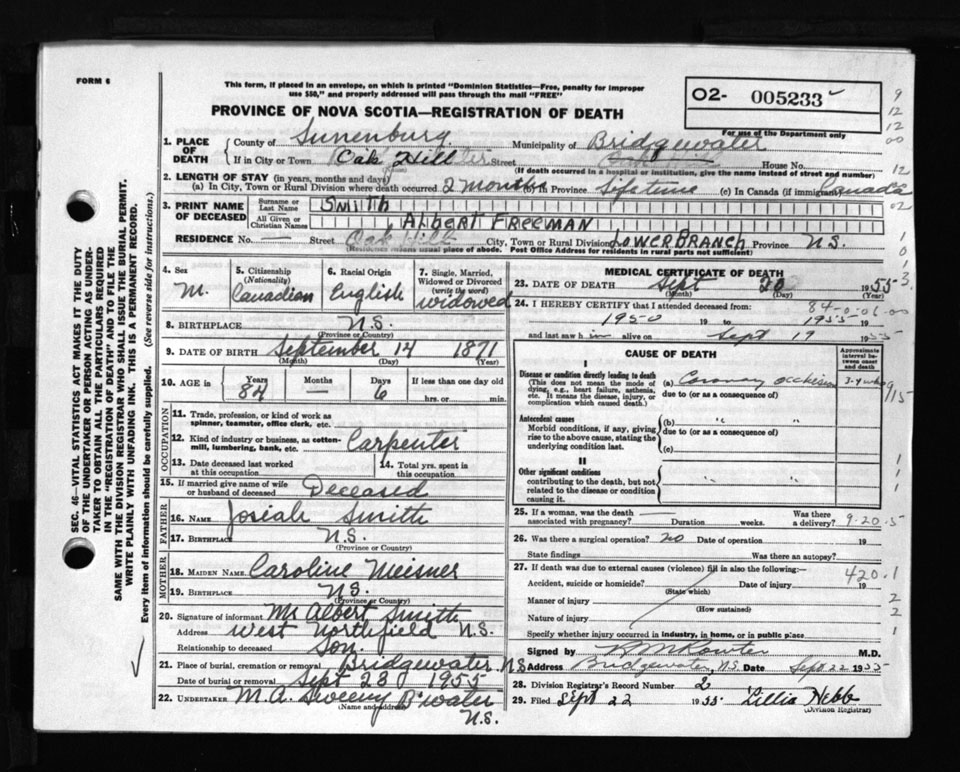 FORM 6
This form, if placed in an envelope, on which is printed "Dominion Statistics—Free, penalty for improper
use $50," and properly addressed will pass through the mail "FREE"
PROVINCE OF NOVA SCOTIA—REGISTRATION OF DEATH
02- 005233
For use of the Department only
9
12
12
00
12
02
1. PLACE OF DEATH
County of Lunenburg Municipality of Bridgewater
If in City or Town Oak Hill Street Oak Hill House No.
(Name) (If death occurred in a hospital or institution, give the name instead of street and number)
2. LENGTH OF STAY (in years, months and days)
(a) In City, Town or Rural Division where death occurred 2 months (b) in Province Lifetime (c) In Canada (if immigrant) Canada
3. PRINT NAME OF DECEASED
Surname or Last Name SMITH
All Given or Christian Names ALBERT FREEMAN
RESIDENCE No. — Street Oak Hill City, Town or Rural Division LOWER BRANCH Province N.S.
(Residence means usual place of abode. Post Office Address for residents in rural parts not sufficient)
4. Sex M.
5. Citizenship (Nationality) Canadian
6. Racial Origin English
7. Single, Married, Widowed or Divorced (write the word) widowed
8. BIRTHPLACE N.S.
(Province or Country)
9. DATE OF BIRTH September 14 1871
(Month) (Day) (Year)
10. AGE in Years 84 Months Days 6 If less than one day old hrs. or min.
OCCUPATION
11. Trade, profession, or kind of work as spinner, teamster, office clerk, etc.
12. Kind of industry or business, as cotton-mill, lumbering, bank, etc. Carpenter
13. Date deceased last worked at this occupation.
14. Total yrs. spent in this occupation.
15. If married give name of wife or husband of deceased Deceased
FATHER
16. NAME Josiah Smith
17. BIRTHPLACE N.S.
(Province or Country)
MOTHER
18. MAIDEN NAME Caroline Meisner
19. BIRTHPLACE N.S.
(Province or Country)
20. Signature of informant Mr Albert Smith
Address West Northfield N.S.
Relationship to deceased Son.
21. Place of burial, cremation or removal Bridgewater N.S.
Date of burial or removal Sept 23 1955
22. UNDERTAKER M.A. Sweeny B'water
(Name and address) N.S.
MEDICAL CERTIFICATE OF DEATH
23. DATE OF DEATH Sept 20 1955
(Month) (Day) (Year)
24. I HEREBY CERTIFY that I attended deceased from: 84-0-06-00
1950 19 to 1955 19
and last saw him alive on Sept 19 1955
CAUSE OF DEATH
Approximate interval between onset and death
I
Disease or condition directly leading to death (a) Coronary occlusion 3-4 wks
(This does not mean the mode of dying, e.g., heart failure, asthenia, etc. It means the disease, injury, or complication which caused death.)
due to (or as a consequence of)
Antecedent causes (b)
Morbid conditions, if any, giving rise to the above cause, stating the underlying condition last.
due to (or as a consequence of)
(c)
II
Other significant conditions
contributing to the death, but not related to the disease or condition causing it.
25. If a woman, was the death associated with pregnancy? — Duration weeks. Was there a delivery? 9-20-5
26. Was there a surgical operation? no Date of operation 19
State findings Was there an autopsy?
27. If death was due to external causes (violence) fill in also the following:— 420.1
Accident, suicide or homicide? Date of injury 19
(State which)
Manner of injury
(How sustained)
Nature of injury
Specify whether injury occurred in industry, in home, or in public place
Signed by M.D.
Address Bridgewater, N.S. Date Sept 22 1955
28. Division Registrar's Record Number 2
29. Filed Sept 22 1955 Lillia Nebb
(Division Registrar)
SEC. 46—VITAL STATISTICS ACT MAKES IT THE DUTY
OF THE UNDERTAKER OR PERSON ACTING AS UNDER-
TAKER TO OBTAIN ALL THE PARTICULARS REQUIRED
IN THE "REGISTRATION OF DEATH" AND TO FILE THE
SAME WITH THE DIVISION REGISTRAR WHO SHALL ISSUE THE BURIAL PERMIT.
WRITE PLAINLY WITH UNFADING INK. THIS IS A PERMANENT RECORD.
Every item of information should be carefully supplied. (See reverse side for instructions.)